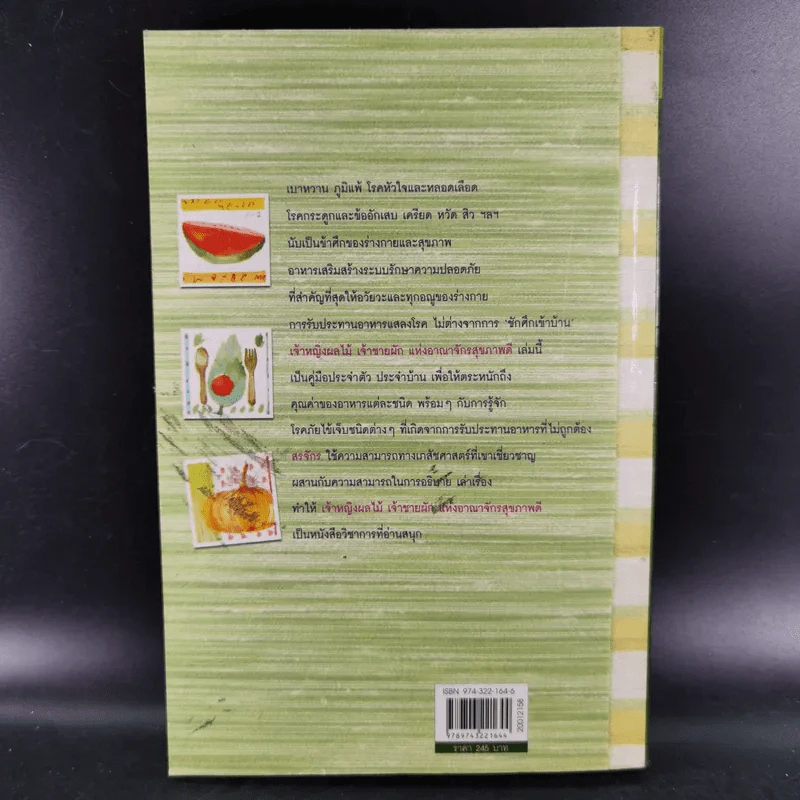 เบาหวาน ภูมิแพ้ โรคหัวใจและหลอดเลือด
โรคกระดูกและข้ออักเสบ เครียด หวัด สิว ฯลฯ
นับเป็นข้าศึกของร่างกายและสุขภาพ
อาหารเสริมสร้างระบบรักษาความปลอดภัย
ที่สำคัญที่สุดให้อวัยวะและทุกอณูของร่างกาย
การรับประทานอาหารแสลงโรค ไม่ต่างจากการ 'ชักศึกเข้าบ้าน'
เจ้าหญิงผลไม้ เจ้าชายผัก แห่งอาณาจักรสุขภาพดี เล่มนี้
เป็นคู่มือประจำตัว ประจำบ้าน เพื่อให้ตระหนักถึง
คุณค่าของอาหารแต่ละชนิด พร้อมๆ กับการรู้จัก
โรคภัยไข้เจ็บชนิดต่างๆ ที่เกิดจากการรับประทานอาหารที่ไม่ถูกต้อง
สรจักร ใช้ความสามารถทางเภสัชศาสตร์ที่เขาเชี่ยวชาญ
ผสานกับความสามารถในการอธิบาย เล่าเรื่อง
ทำให้ เจ้าหญิงผลไม้ เจ้าชายผัก แห่งอาณาจักรสุขภาพดี
เป็นหนังสือวิชาการที่อ่านสนุก
ISBN 974-322-164-6
20012158
9789743221644
ราคา 245 บาท